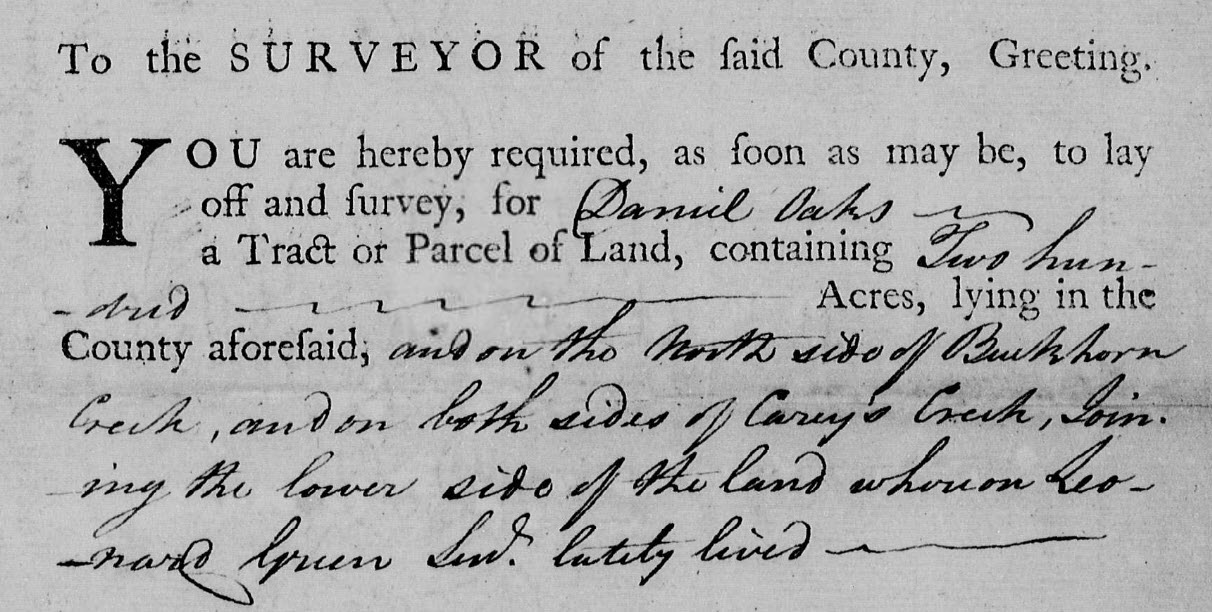 To the SURVEYOR of the ſaid County, Greeting.
YOU are hereby required, as ſoon as may be, to lay
off and ſurvey, for Daniel Oaks
a Tract or Parcel of Land, containing Two hun-
-dred Acres, lying in the
County aforeſaid, and on the North side of Buckhorn
Creek, and on both sides of Carey's Creek, Join-
ing the lower side of the land whereon Leo-
-nard Green Senr. lately lived